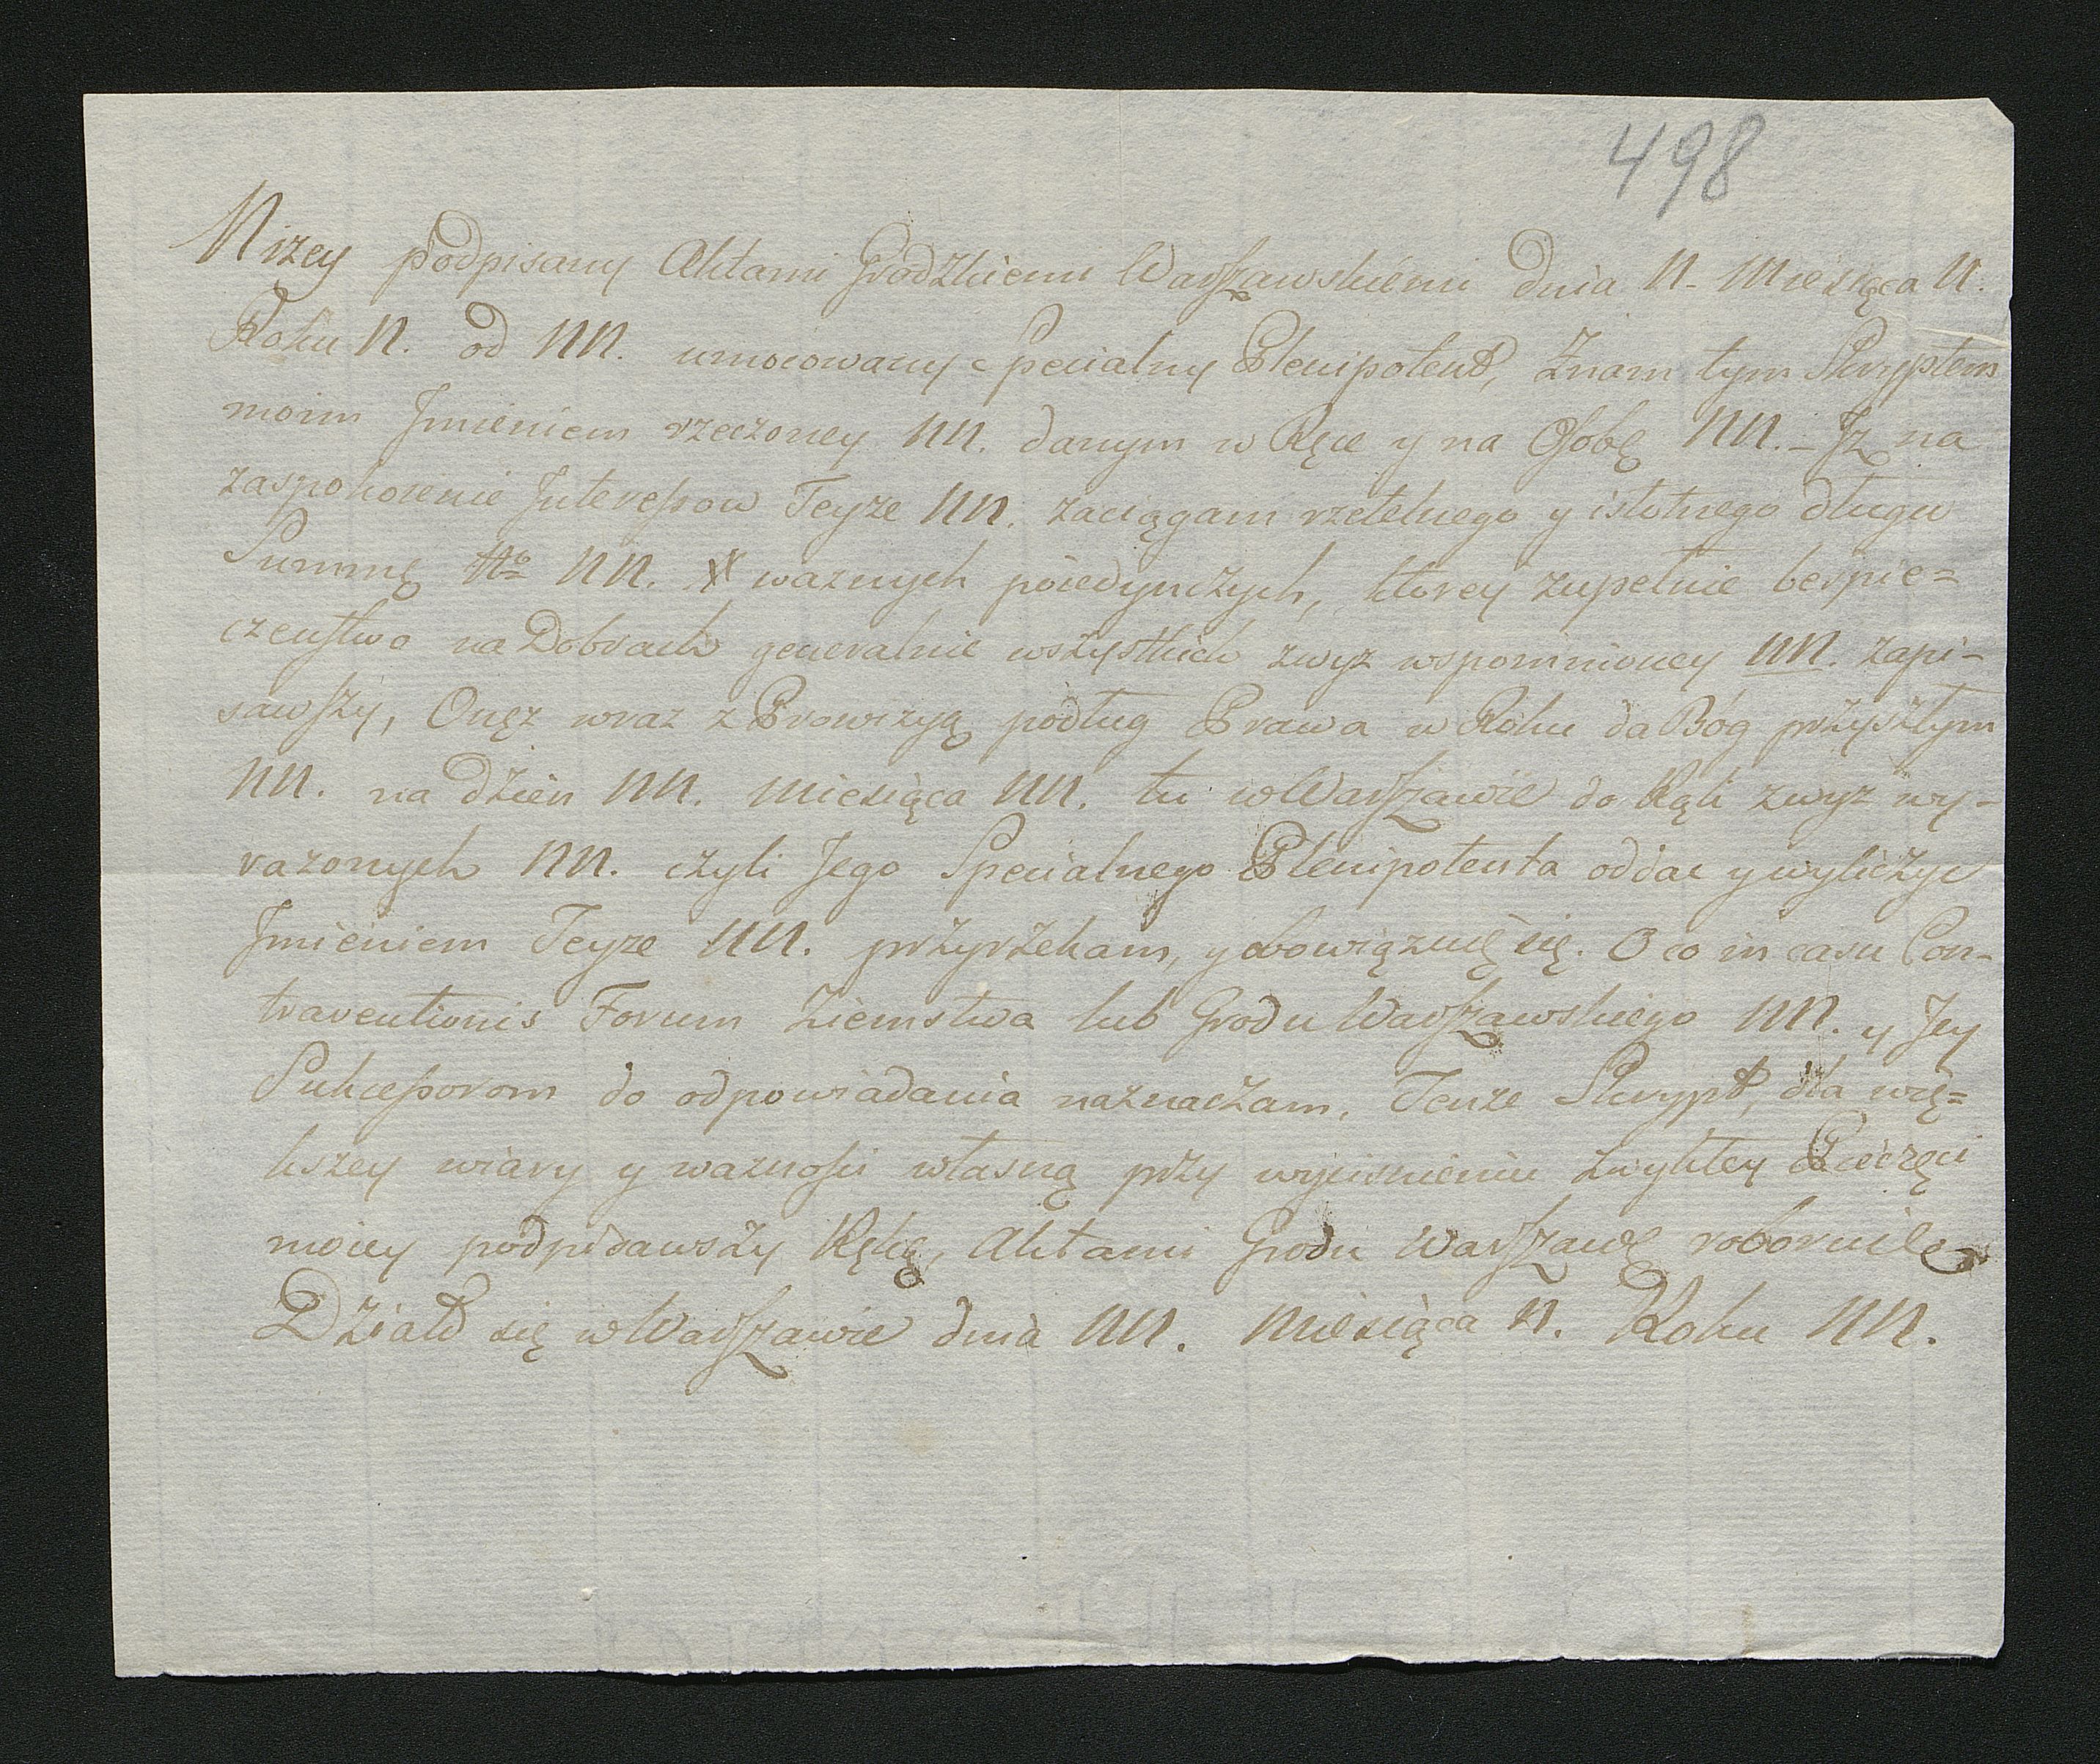 498
Nizey podpisany Aktami Grodzkiemi Warszawskiemi dnia N. Miesiąca N.
Roku N. od NN. umocowany Specialny Plenipotent, Znam tym Skryptem
moim Jmieniem rzeczoney NN. danym w Ręce y na Osobę NN. – Jż na
zaspokoienie Interessow Teyze NN. zaciągam rzetelnego y istotnego długu
Summę No NN. # waznych poiedynczych, ktorey zupełnie bespie=
czenstwo na Dobrach generalnie wszystkich zwyz wspomnioney NN. zapi-
sawszy, Onęz wraz z Prowizyą podług Prawa w Roku da Bóg przyszłym
NN. na dzien NN. Miesiąca NN. tu w Warszawie do Rąk zwyz wy-
razonych NN. czyli Jego Specialnego Plenipotenta oddac y wyliczyc
Jmieniem Teyze NN. przyrzekam, y obowiązuię się. O co in casu Con-
traventionis Forum Ziemstwa lub Grodu Warszawskiego NN. y Jey
Sukcessorom do odpowiadania naznaczam. Tenze Skrypt, dla wię=
kszey wiary y waznosci własną przy wycisnieniu zwykłey Pieczęci
moiey podpisawszy Ręką, Aktami Grodu Warszawę roboruię
Działo się w Warszawie dnia NN. Miesiąca N. Roku NN.